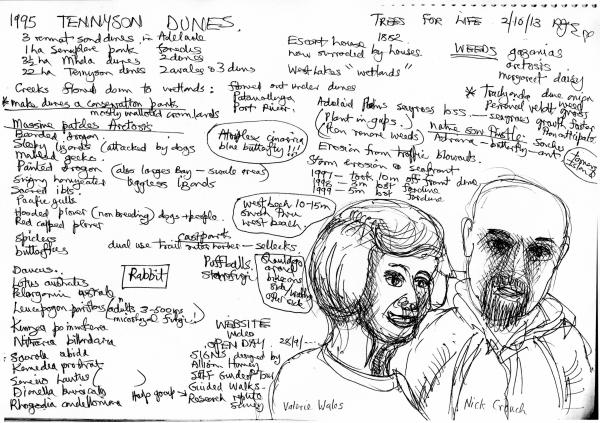 1995 TENNYSON DUNES.
TREES FOR LIFE 2/10/13
3 remnant sand dunes in Adelaide
1 ha Semaphore park foredies
3½ ha Minda dunes 2 dunes
22 ha Tennyson dunes 2 swales & 3 dunes
Escort house 1882
now surrounded by houses.
West Lakes "wetlands"
WEEDS gazanias
arctosis
margaret daisy
* Trachyandra dune onion weed
Perennial veldt grass
Creeks flowed down to wetlands: flowed out under dunes
Patawalonga
Port River.
* make dunes a conservation park.
mostly walled from lands
Massive patches Arctosis
Bearded dragon
Sleepy lizards (attacked by dogs
Marbled gecko.
Painted dragon (also Largs Bay - swale areas)
Singing honeyeater legless lizards
Sacred ibis.
Pacific gulls
Hooded plover (non breeding) dogs + people.
Red capped plover
Spiders
butterflies
Atriplex cinerea
blue butterfly!!!
Adelaide Plains seagrass loss
seagrass growth faster
Plant in gaps.
then remove weeds
native sow thistle.
Adriana - butterfly - ant
Erosion from traffic blowouts.
Storm erosion @ seafront
1997 - took 10m off front dune
1998 - 3m lost foredune
1999 - 5m lost foredune
west beach 10-15m
sweet thru
west beach
coast park
dual use trail outer harbor - sellecks
Puffballs
Daucus.
Lotus australis
Pelargonium australe
Leucopogon parviflorus (adults 3-500 yrs
microrhyzal fungi!)
Kunzea pomifera
Nitraria billardieri
Scaevola albida
Kennedia prostrat
Senecio lautus
Dianella brevicaulis
Rhagodia candolleana
Rabbit
WEBSITE
video
OPEN DAY 28/9/
SIGNS designed by
Allison
Self Guided tour
Guided Walks
Research reptile
survey
Help group
Valerie Wales
Nick Crouch